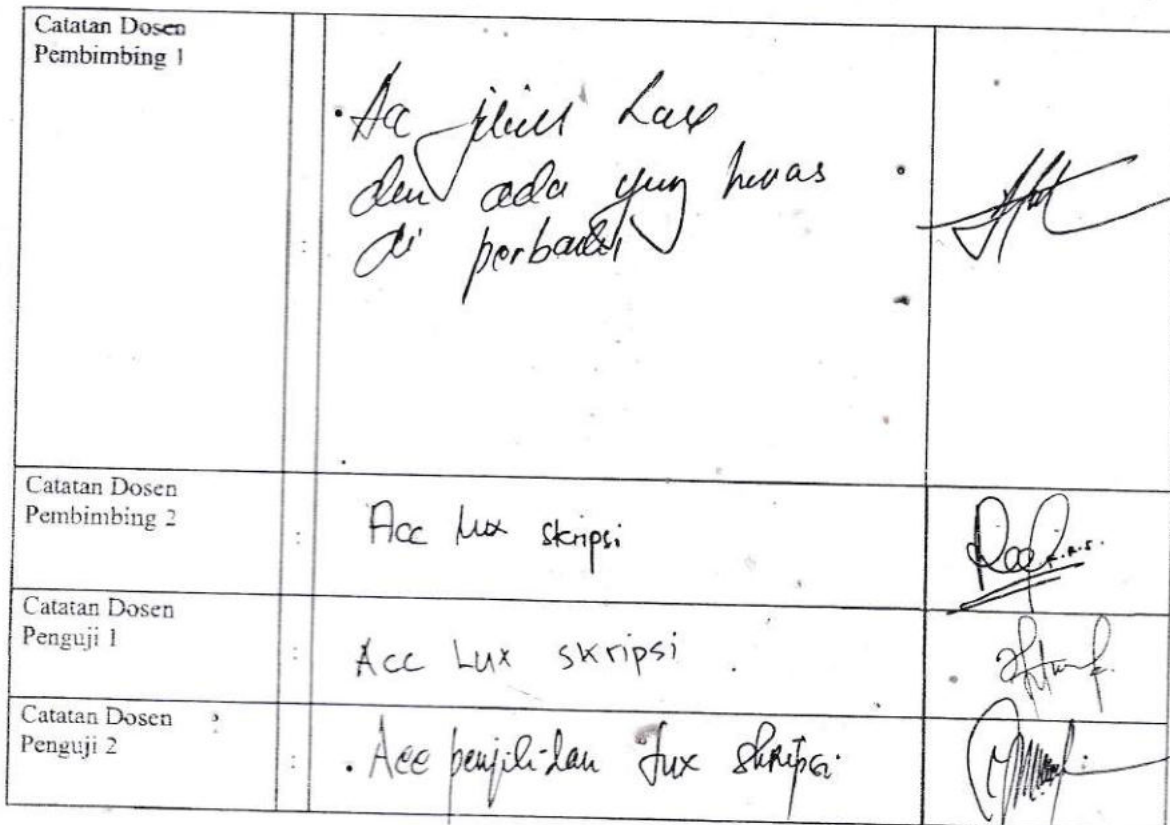 Catatan Dosen
Pembimbing 1
:
Acc jilid Lux
dan ada yang
di perbaiki
Catatan Dosen
Pembimbing 2
:
Acc Lux skripsi
Catatan Dosen
Penguji 1
:
Acc Lux skripsi
Catatan Dosen
Penguji 2
:
Acc penjilidan Lux skripsi